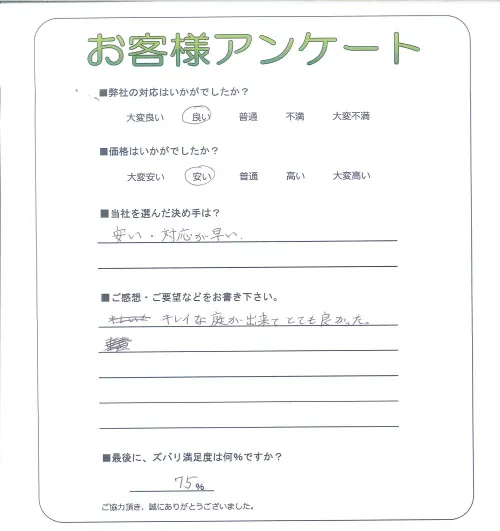 お客様アンケート
■弊社の対応はいかがでしたか？
大変良い 良い 普通 不満 大変不満
■価格はいかがでしたか？
大変安い 安い 普通 高い 大変高い
■当社を選んだ決め手は？
安い・対応が早い.
■ご感想・ご要望などをお書き下さい。
キレイな庭が出来てとても良かった。
■最後に、ズバリ満足度は何%ですか？
75%
ご協力頂き、誠にありがとうございました。